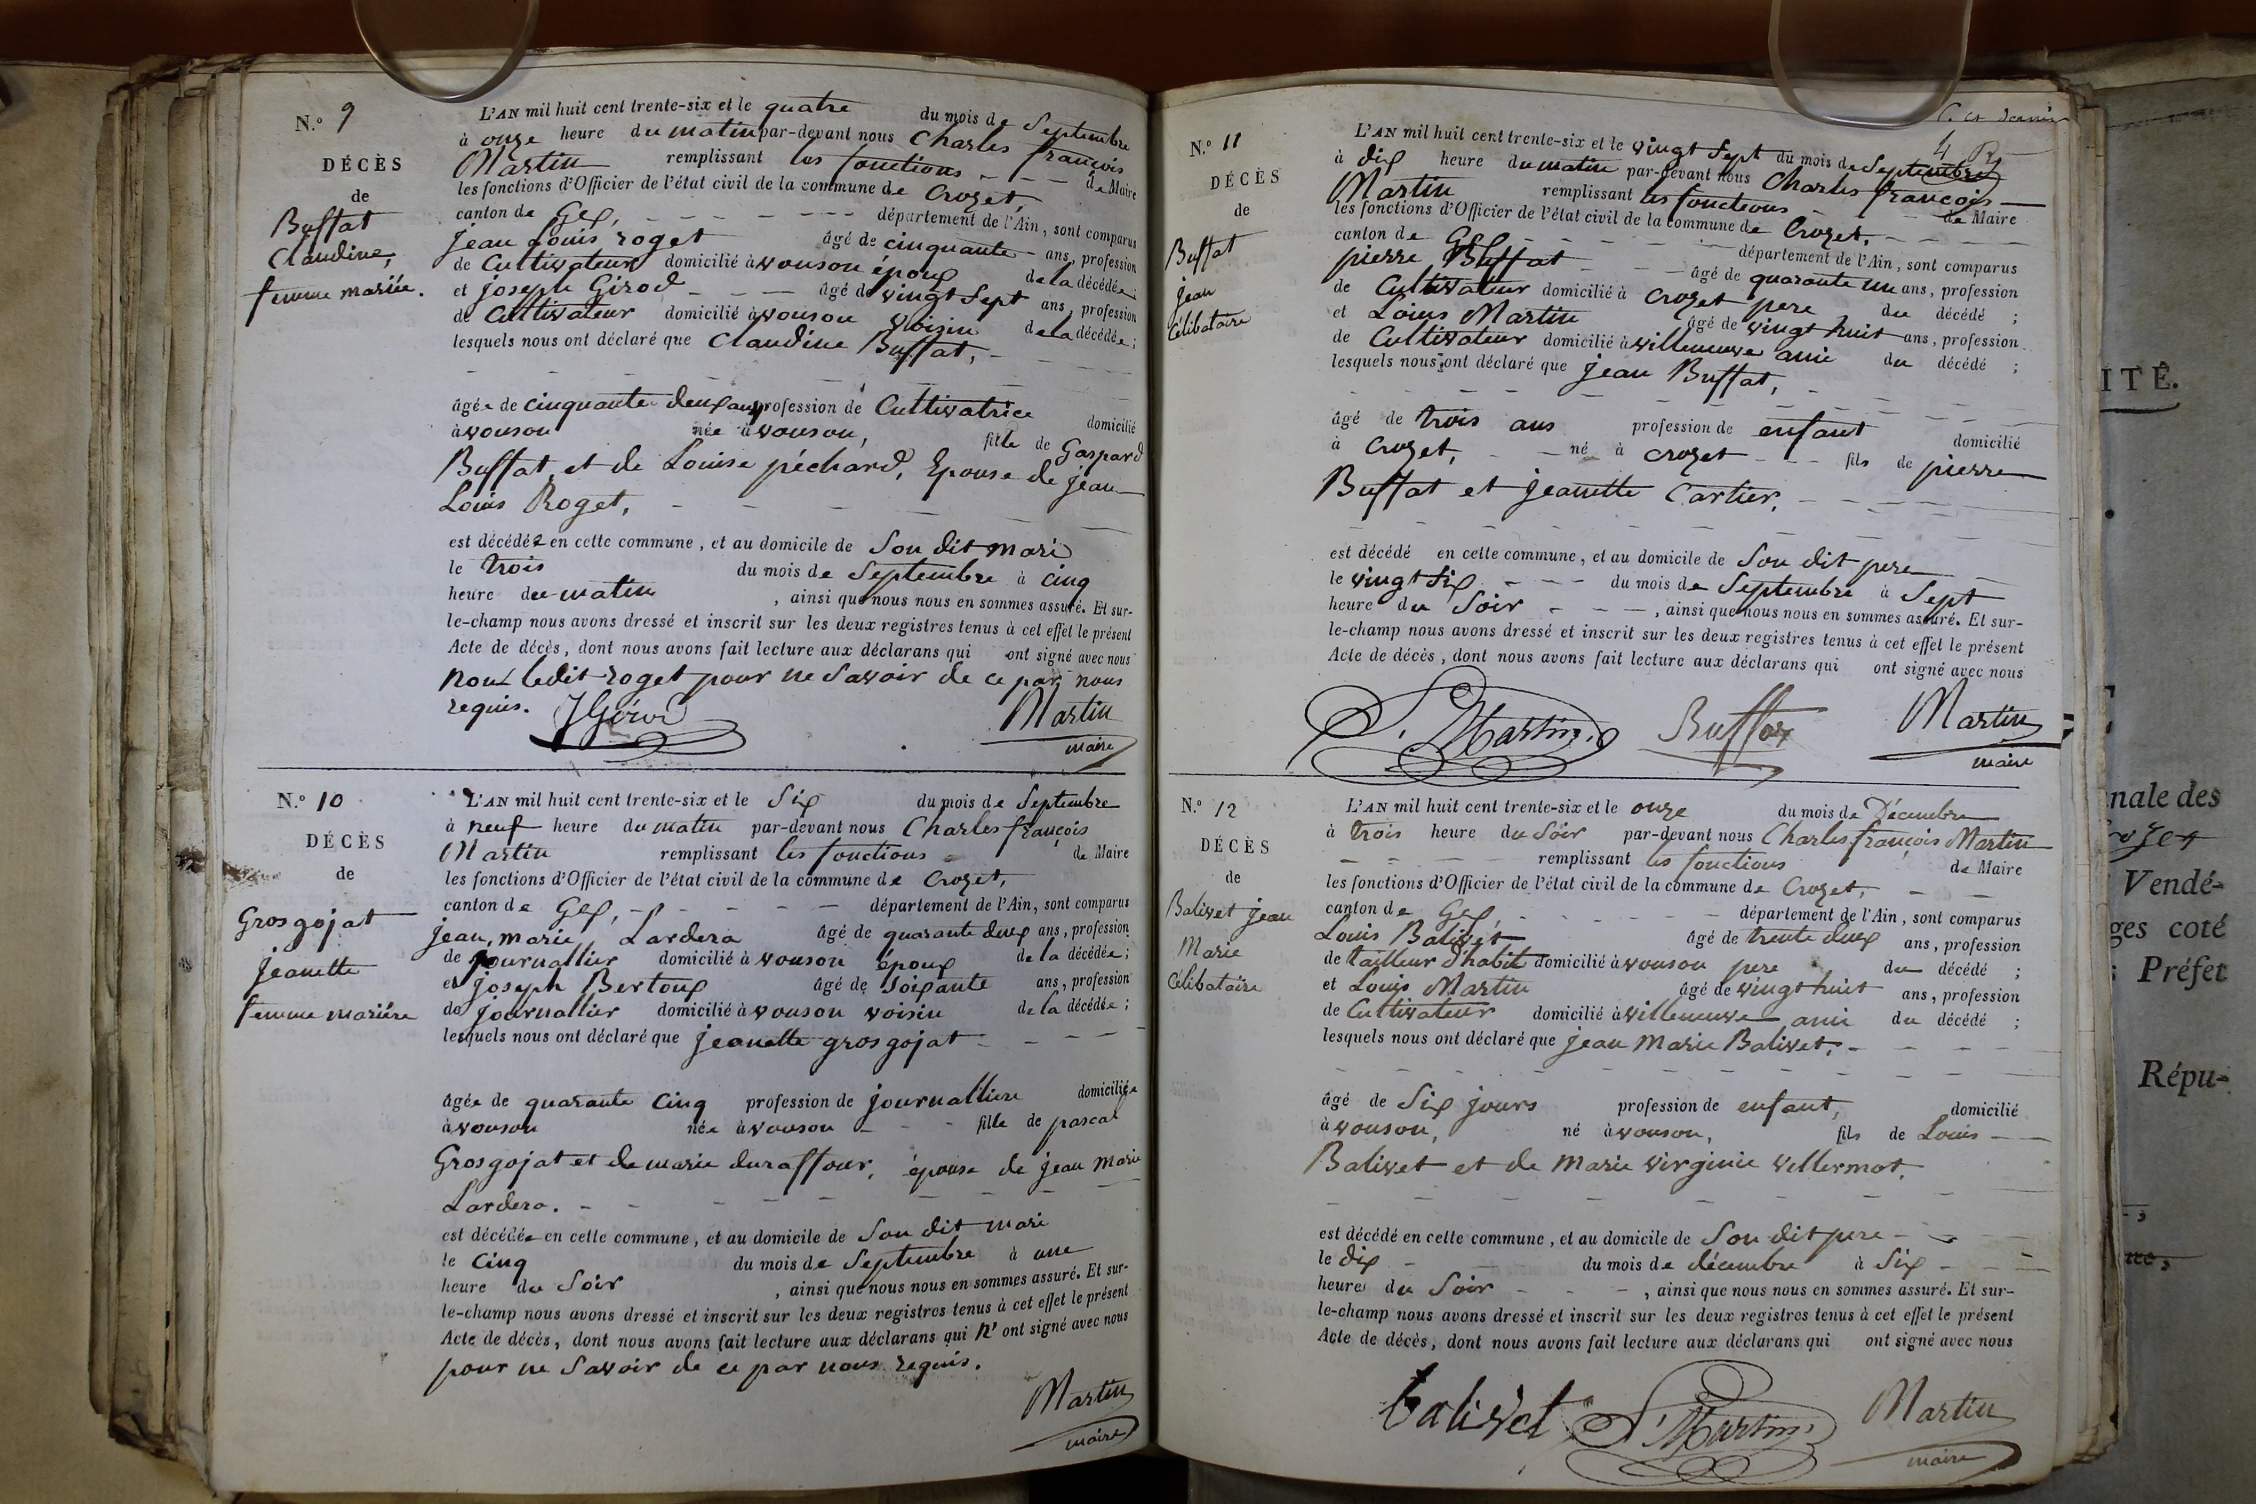 N.º 9
DÉCÈS
de
Buffat
Claudine,
femme mariée.
L'AN mil huit cent trente-six et le quatre du mois de Septembre
à onze heure du matin par-devant nous Charles françois
Martin remplissant les fonctions - - - de Maire
les fonctions d'Officier de l'état civil de la commune de Crozet,
canton de Gex, - - - - - - département de l'Ain, sont comparus
jean Louis roget âgé de cinquante - ans, profession
de Cultivateur domicilié à vouson époux de la décédée;
et joseph Girod - - - âgé de vingt Sept ans, profession
de Cultivateur domicilié à vouson voizin de la décédée;
lesquels nous ont déclaré que Claudine Buffat, - - -
âgée de cinquante deux ans profession de Cultivatrice domicilié
à vouson née à vouson, fille de Gaspard
Buffat, et de Louise péchard, Epouse de jean
Louis Roget, - - - - - -
est décédée en cette commune, et au domicile de Son dit mari
le trois du mois de Septembre à cinq
heure du matin , ainsi que nous nous en sommes assuré. Et sur-
le-champ nous avons dressé et inscrit sur les deux registres tenus à cet effet le présent
Acte de décès, dont nous avons fait lecture aux déclarans qui ont signé avec nous
non ledit roget pour ne Savoir de ce par nous
requis. JGirod Martin
maire
N.º 10
DÉCÈS
de
Grosgojat
jeanette
femme mariée
L'AN mil huit cent trente-six et le Six du mois de Septembre
à neuf heure du matin par-devant nous Charles françois
Martin remplissant les fonctions - de Maire
les fonctions d'Officier de l'état civil de la commune de Crozet,
canton de Gex, - - - - - département de l'Ain, sont comparus
jean, marie Lardera âgé de quarante deux ans, profession
de journallier domicilié à vouson époux de la décédée;
et joseph Bertoux âgé de Soixante ans, profession
de journallier domicilié à vouson voisin de la décédée;
lesquels nous ont déclaré que jeanette grosgojat - - - -
âgée de quarante cinq profession de journalliere domiciliée
à vouson née à vouson - - - fille de pascal
Grosgojat et de marie duraffour, épouse de jean marie
Lardera. - - - - - - - -
est décédée en cette commune, et au domicile de Son dit mari
le Cinq du mois de Septembre à une
heure du Soir , ainsi que nous nous en sommes assuré. Et sur-
le-champ nous avons dressé et inscrit sur les deux registres tenus à cet effet le présent
Acte de décès, dont nous avons fait lecture aux déclarans qui n' ont signé avec nous
pour ne Savoir de ce par nous requis.
Martin
maire
4 R
N.º 11
DÉCÈS
de
Buffat
jean
Célibataire
L'AN mil huit cent trente-six et le vingt Sept du mois de Septembre
à dix heure du matin par-devant nous Charles françois
Martin remplissant les fonctions - de Maire
les fonctions d'Officier de l'état civil de la commune de Crozet, - - - -
canton de Gex - - - - département de l'Ain, sont comparus
pierre Buffat - - - âgé de quarante un ans, profession
de Cultivateur domicilié à crozet pere du décédé ;
et Louis Martin âgé de vingt huit ans, profession
de Cultivateur domicilié à villeneuve ami du décédé ;
lesquels nous ont déclaré que jean Buffat, -
âgé de trois ans profession de enfant domicilié
à Crozet, - - né à crozet - - - fils de pierre
Buffat et jeanette Cartier, - - - -
est décédé en cette commune, et au domicile de Son dit pere
le vingt Six - - - du mois de Septembre à Sept
heure du Soir - - - , ainsi que nous nous en sommes assuré. Et sur-
le-champ nous avons dressé et inscrit sur les deux registres tenus à cet effet le présent
Acte de décès, dont nous avons fait lecture aux déclarans qui ont signé avec nous
Martin Buffat Martin
maire
N.º 12
DÉCÈS
de
Balivet jean
Marie
Célibataire
L'AN mil huit cent trente-six et le onze du mois de Décembre
à trois heure du Soir par-devant nous Charles françois Martin
- - - - remplissant les fonctions de Maire
les fonctions d'Officier de l'état civil de la commune de Crozet, - -
canton de Gex, - - - - - - département de l'Ain, sont comparus
Louis Balivet âgé de trente deux ans, profession
de tailleur d'habit domicilié à vouson pere du décédé ;
et Louis Martin âgé de vingt huit ans, profession
de Cultivateur domicilié à villeneuve ami du décédé ;
lesquels nous ont déclaré que jean Marie Balivet, - - - -
âgé de Six jours profession de enfant, domicilié
à vouson, né à vouson, fils de Louis - -
Balivet et de Marie virginie villermot.
est décédé en cette commune, et au domicile de Son dit pere - -
le dix - - du mois de décembre à Six - - -
heure du Soir - - - , ainsi que nous nous en sommes assuré. Et sur-
le-champ nous avons dressé et inscrit sur les deux registres tenus à cet effet le présent
Acte de décès, dont nous avons fait lecture aux déclarans qui ont signé avec nous
balivet Martin Martin
maire
ITÉ.
nale des
Vendé-
ges coté
Préfet
Répu-